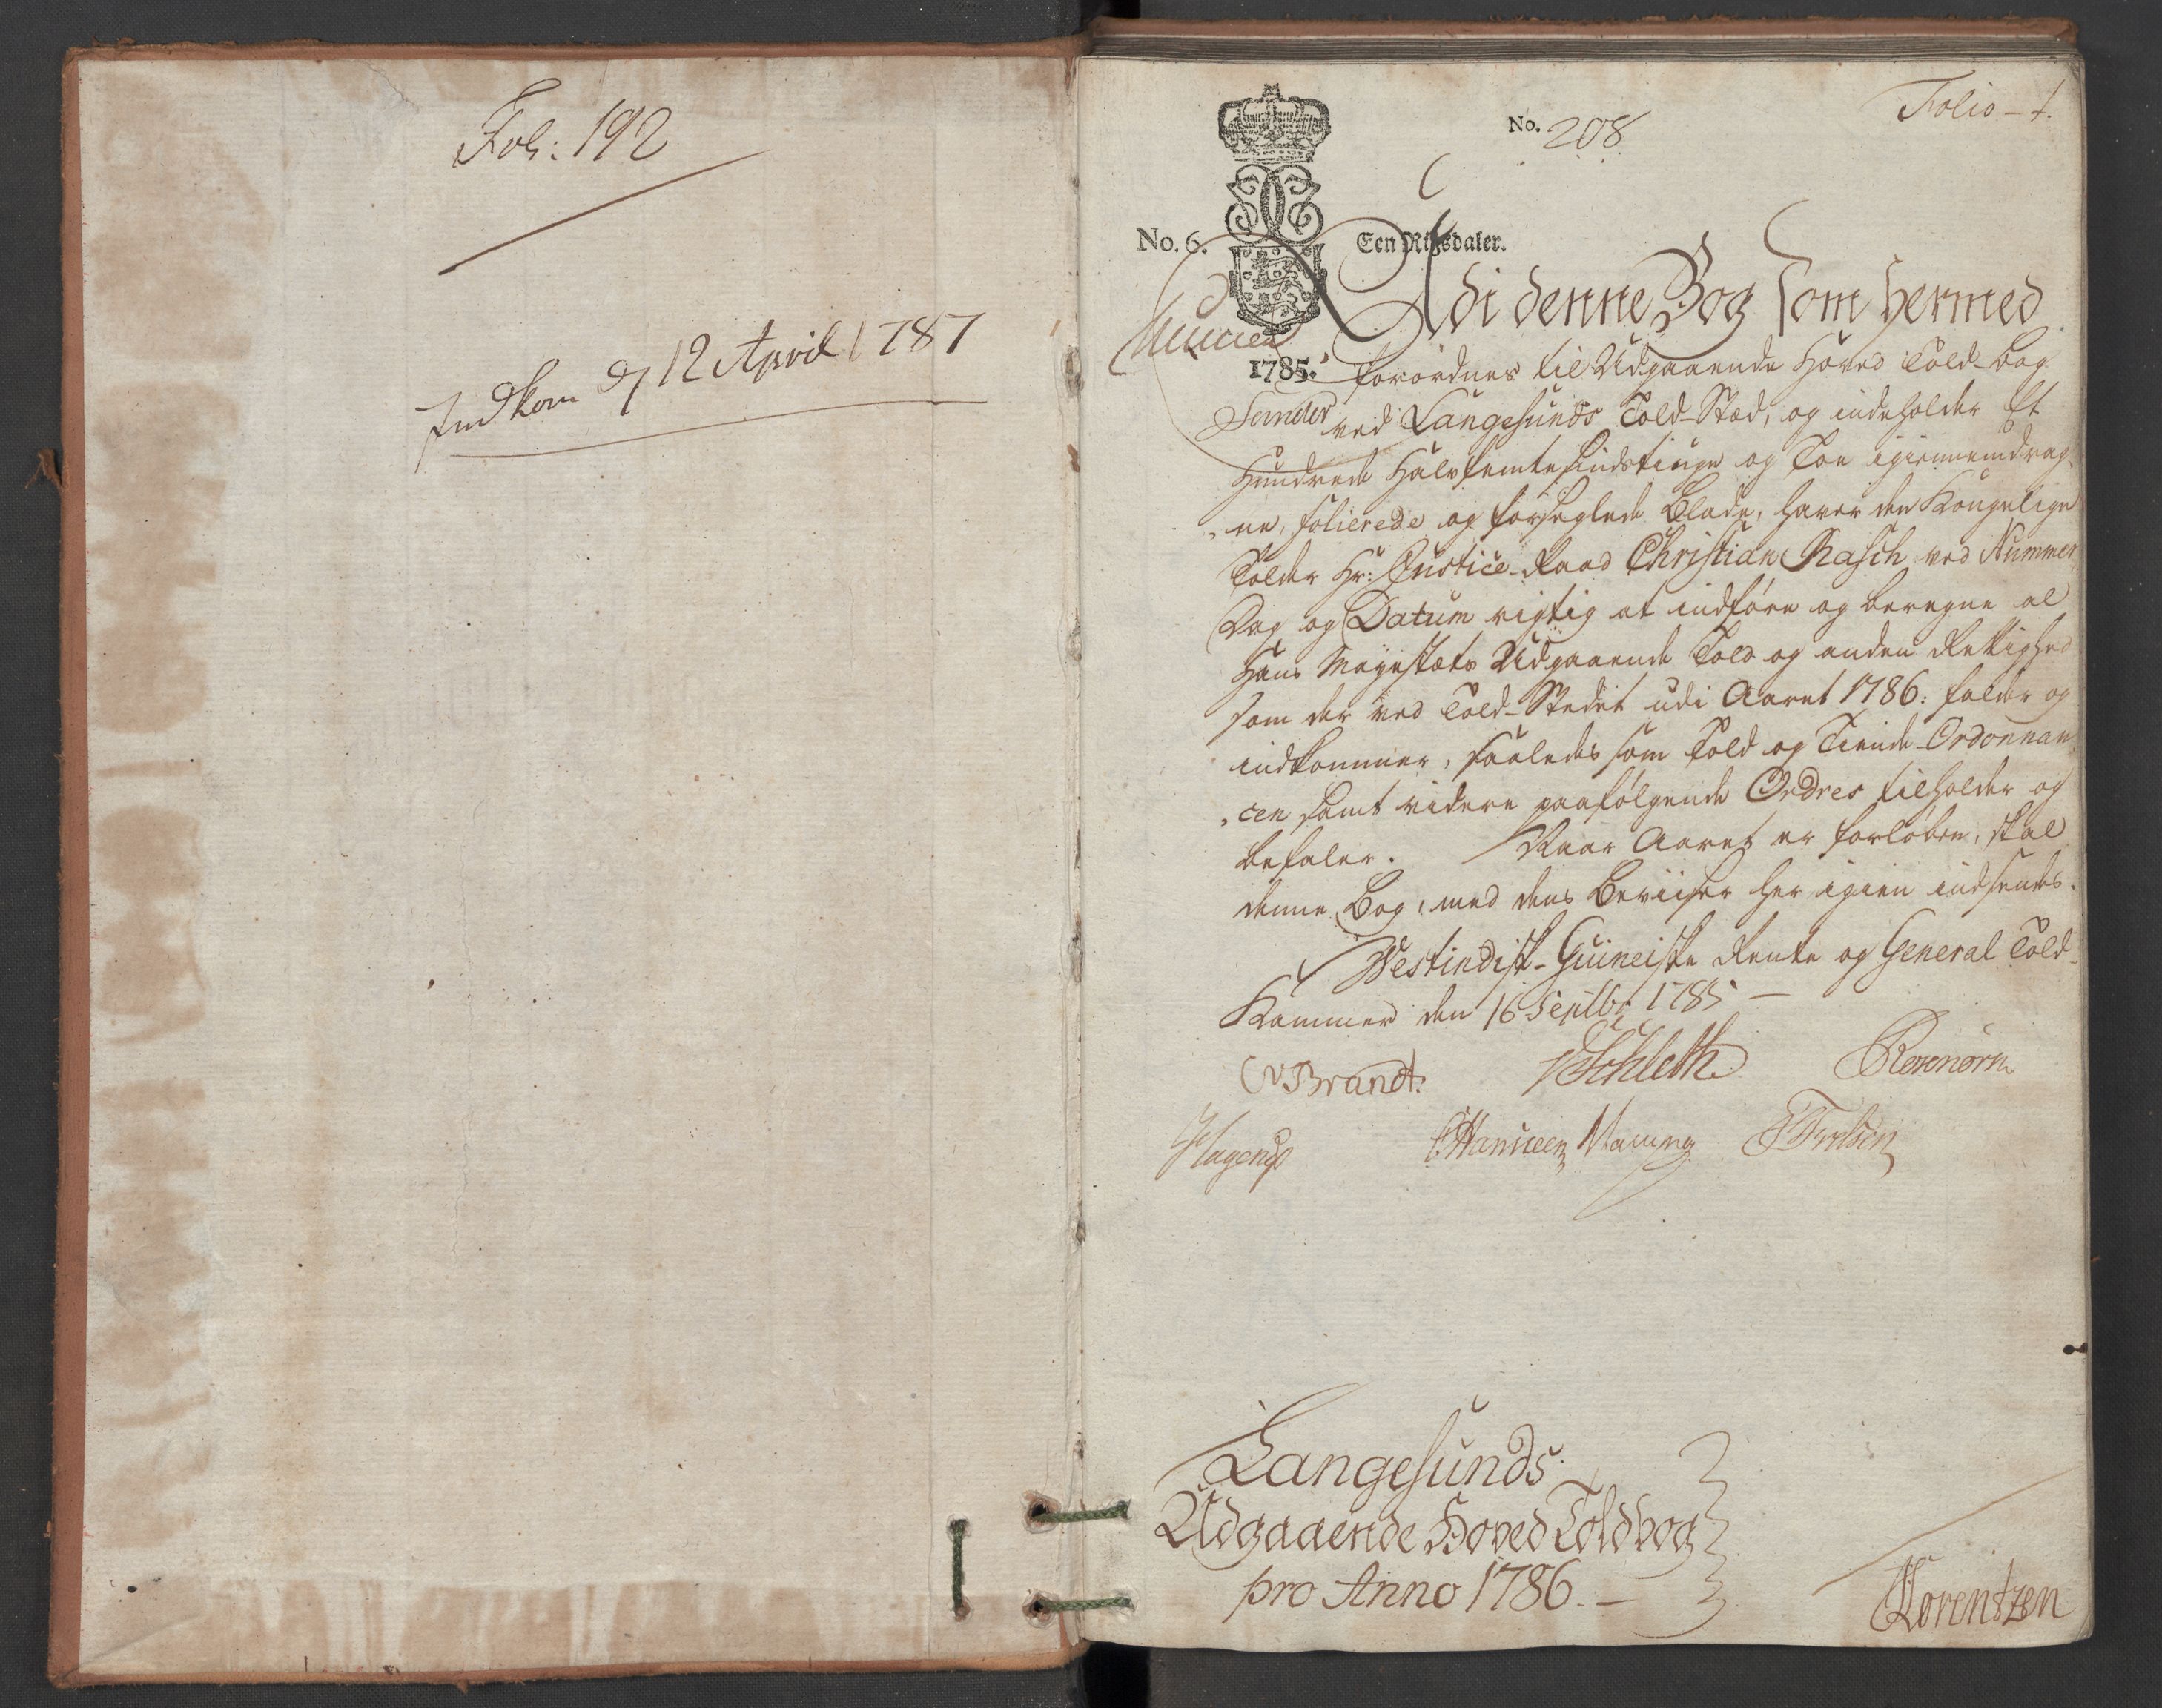 Fol: 192
Indkom d 12 April 1787
Folio - 1.
No. 208
No. 6.
Een Rigsdaler.
Udi denne Bog som hermed
1785.
forordnes til Udgaaende Hoved Told-bog
ved Langesunds Told-Stæd, og indeholder Et
Hundrede Halvfemtesindstiuge og Toe igiennemdrag-
ne, folierede og forseglede Blade, haver den Kongelige
Tolder Hr: Justice-Raad Christian Rasch ved Nummer
Dag og Datum rigtig at indføre og beregne al
Hans Mayestæts Udgaaende Told og anden Rettighed
som der ved Told-Stedet udi Aaret 1786: falder og
indkommer, saaledes som Told og Tiende-Ordonnan-
cen samt videre paafølgende Ordres tilholder og
befaler. Naar Aaret er forløben, skal
denne Bog, med dens Beviiser her igien indsendes.
Westindisk-Guineiske Rente og General Told-
Kammer den 16 Septbr 1785 —
Brandt. Schleth
Hagerup
Langesunds
Udgaaende Hoved Toldbog
pro Anno 1786. —
Lorentzen